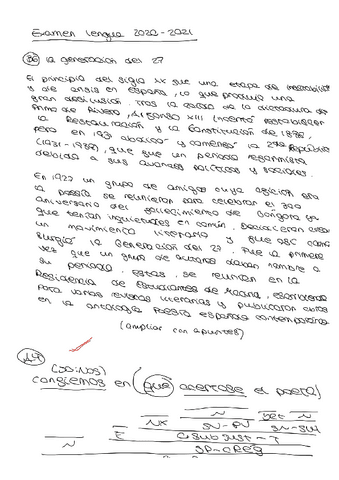 Examen Lengua 2020-2021
36 La generación del 27
El principio del siglo XX fue una etapa de inestabilidad
y de crisis en España, lo que produjo una
gran desilusión. Tras la caída de la dictadura de
Primo de Rivera, Alfonso XIII intentó restablecer
la Restauración y la Constitución de 1876,
pero en 1931 abdicó y comenzó la 2ª República
(1931-1936), que fue un periodo
debido a sus avances políticos y sociales.
En 1927 un grupo de amigos cuya afición era
la poesía se reunieron para celebrar el 300
aniversario del fallecimiento de Góngora
que tenían inquietudes en común. Decidieron crear
un movimiento literario y fue así como
surgió la Generación del 27. Fue la primera
vez que un grupo de autores daban nombre a
su periodo. Estos se reunían en la
Residencia de Estudiantes de Madrid, escribieron
para varias revistas literarias y publicaron obras
en la antología Poesía española contemporánea
(ampliar con apuntes)
(SO:NOS)
Confiemos en (que acertase el poeta)
NX SN-PV SN-SUJ
E O.SUB.SUST-T
SP-CREG